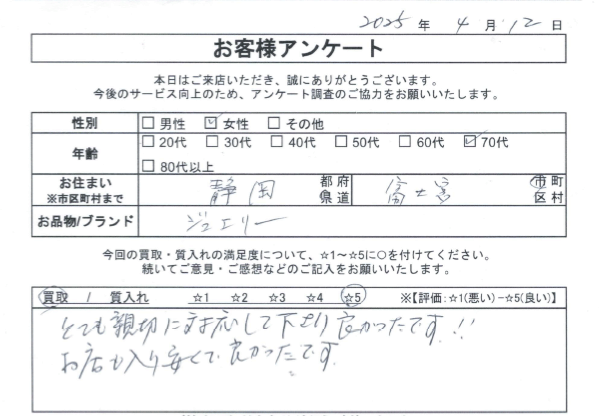 2025 年 4 月 12 日
お客様アンケート
本日はご来店いただき、誠にありがとうございます。
今後のサービス向上のため、アンケート調査のご協力をお願いいたします。
性別 □ 男性 ☑ 女性 □ その他
年齢 □ 20代 □ 30代 □ 40代 □ 50代 □ 60代 ☑ 70代
□ 80代以上
お住まい ※市区町村まで 静岡 都府県道 富士宮 市町区村
お品物/ブランド ジュエリー
今回の買取・質入れの満足度について、☆1～☆5に○を付けてください。
続いてご意見・ご感想などのご記入をお願いいたします。
買取 / 質入れ ☆1 ☆2 ☆3 ☆4 ☆5 ※【評価:☆1(悪い)−☆5(良い)】
とても親切に対応して下さり良かったです!!
お店も入り安くて良かったです